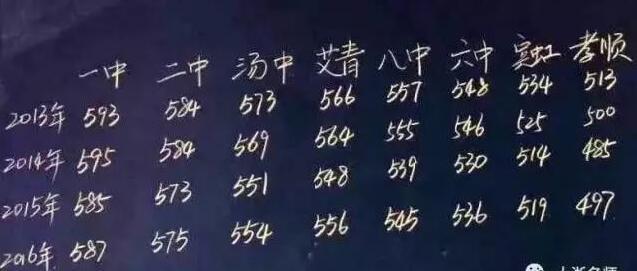 一中 二中 汤中 艾青 八中 六中 宾虹 孝顺
2013年 593 584 573 566 557 548 534 513
2014年 595 584 569 564 555 546 525 500
2015年 585 573 551 548 539 530 514 485
2016年 587 575 554 556 545 536 519 497